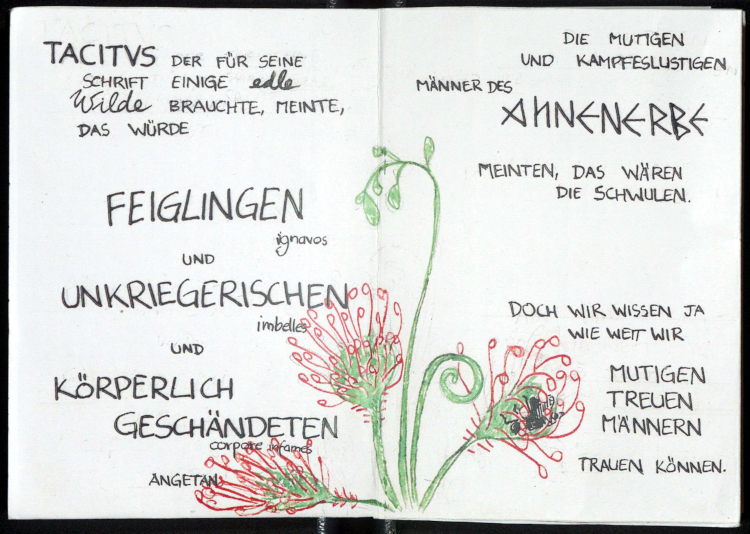 TACITVS DER FÜR SEINE
SCHRIFT EINIGE edle
Wilde BRAUCHTE, MEINTE,
DAS WÜRDE
FEIGLINGEN
ignavos
UND
UNKRIEGERISCHEN
imbelles
UND
KÖRPERLICH
GESCHÄNDETEN
corpore infames
ANGETAN.
DIE MUTIGEN
UND KAMPFESLUSTIGEN
MÄNNER DES
AHNENERBE
MEINTEN, DAS WÄREN
DIE SCHWULEN.
DOCH WIR WISSEN JA
WIE WEIT WIR
MUTIGEN
TREUEN
MÄNNERN
TRAUEN KÖNNEN.